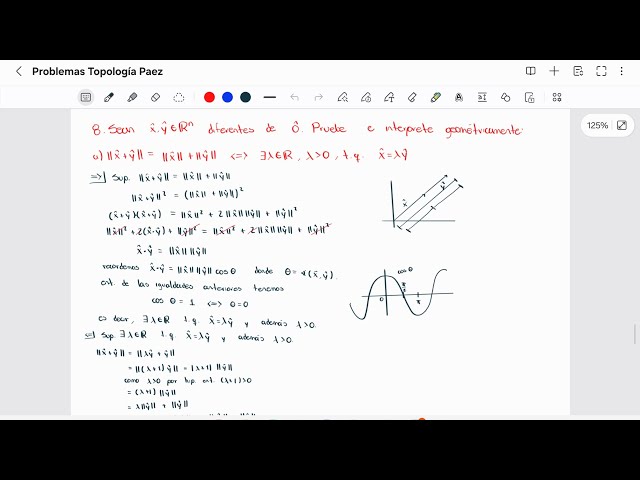 Problemas Topología Paez
125%
8. Sean x̂, ŷ ∈ ℝⁿ diferentes de Ô. Pruebe e interprete geométricamente:
a) ||x̂+ŷ|| = ||x̂|| + ||ŷ|| <=> ∃λ∈ℝ, λ>0, t.q. x̂=λŷ
=>) Sup. ||x̂+ŷ|| = ||x̂|| + ||ŷ||
||x̂+ŷ||² = (||x̂|| + ||ŷ||)²
(x̂+ŷ)·(x̂+ŷ) = ||x̂||² + 2||x̂|| ||ŷ|| + ||ŷ||²
||x̂||² + 2(x̂·ŷ) + ||ŷ||² = ||x̂||² + 2||x̂|| ||ŷ|| + ||ŷ||²
x̂·ŷ = ||x̂|| ||ŷ||
recordemos x̂·ŷ = ||x̂|| ||ŷ|| cos θ donde θ = ∢(x̂,ŷ).
ent. de las igualdades anteriores tenemos
cos θ = 1 <=> θ=0
es decir, ∃λ∈ℝ t.q. x̂=λŷ y además λ>0.
<=) Sup ∃λ∈ℝ t.q. x̂=λŷ y además λ>0.
||x̂+ŷ|| = ||λŷ + ŷ||
= ||(λ+1)ŷ|| = |λ+1| ||ŷ||
como λ>0 por hip. ent. (λ+1)>0
= (λ+1) ||ŷ||
= λ||ŷ|| + ||ŷ||
x̂
ŷ
cos θ
0
π